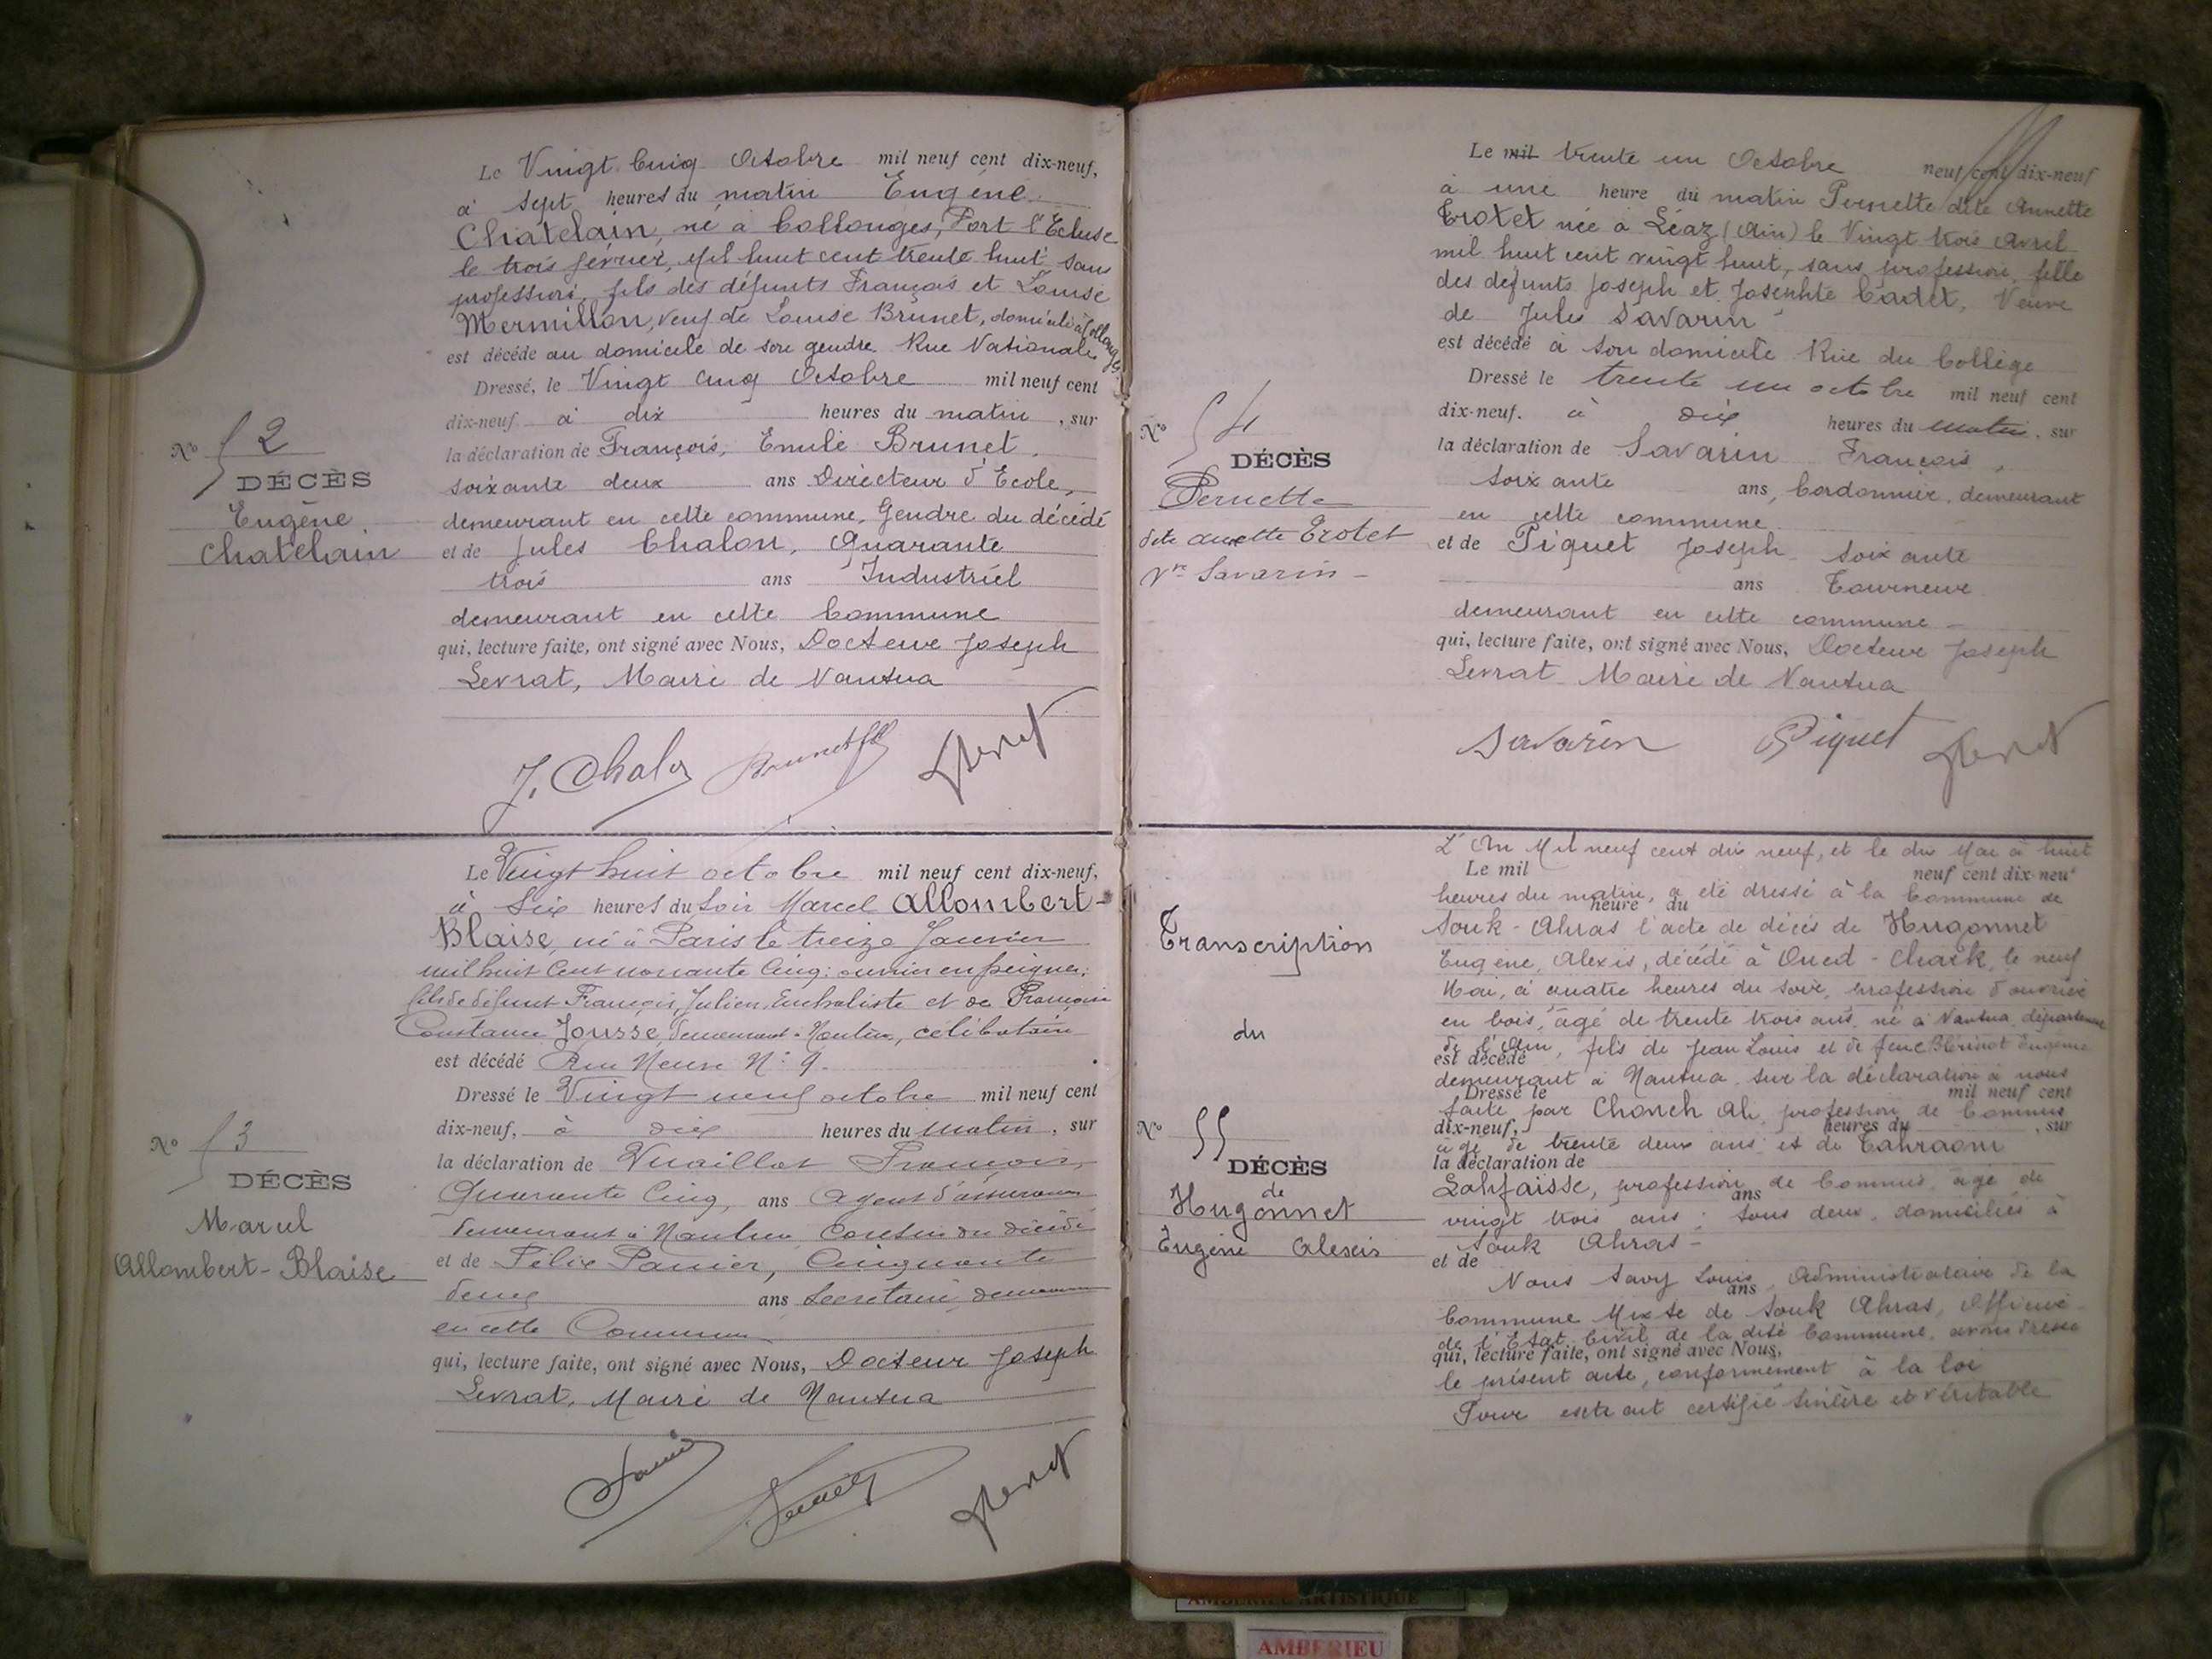 Le Vingt Cinq Octobre mil neuf cent dix-neuf,
à sept heures du matin Eugène
Chatelain, né à Collonges, Fort l'Ecluse
le trois février, mil huit cent trente huit sans
profession, fils des défunts François et Louise
Mermillon, veuf de Louise Brunet, domicilié à Collonges
est décédé au domicile de son gendre Rue Nationale
Dressé, le Vingt cinq Octobre mil neuf cent
dix-neuf à dix heures du matin, sur
la déclaration de François, Emile Brunet,
soixante deux ans Directeur d'Ecole,
demeurant en cette commune, Gendre du décédé
et de Jules Chalon, Quarante
trois ans Industriel
demeurant en cette Commune
qui, lecture faite, ont signé avec Nous, Docteur Joseph
Levrat, Maire de Nantua
N° 52
DÉCÈS
Eugène
Chatelain
J. Chalon Brunet
Le Vingt huit octobre mil neuf cent dix-neuf,
à six heures du soir Marcel Allombert-
Blaise, né à Paris le treize Janvier
mil huit cent nonante cinq; ouvrier en peignes;
fils de défunt François, Julien, et de Françoise
Constance Jousse, demeurant à Nantua, célibataire
est décédé Rue Neuve N° 9.
Dressé le Vingt neuf octobre mil neuf cent
dix-neuf, à dix heures du matin, sur
la déclaration de Vuaillat François,
Quarante Cinq, ans Agent d'assurances
demeurant à Nantua Cousin du décédé
et de Félix Panier, Cinquante
deux ans Secrétaire, demeurant
en cette Commune
qui, lecture faite, ont signé avec Nous, Docteur Joseph
Levrat, Maire de Nantua
N° 53
DÉCÈS
Marcel
Allombert-Blaise
Le mil trente un Octobre neuf cent dix-neuf
à une heure du matin Pernette dite Annette
Trotet née à Léaz (Ain) le Vingt trois Avril
mil huit cent vingt huit, sans profession, fille
des défunts Joseph et Josephte Cadet, Veuve
de Jules Savarin
est décédé à son domicile Rue du Collège
Dressé le trente un octobre mil neuf cent
dix-neuf. à dix heures du matin, sur
la déclaration de Savarin François,
soixante ans, Cordonnier, demeurant
en cette commune
et de Piquet Joseph soixante
ans Tourneur
demeurant en cette commune
qui, lecture faite, ont signé avec Nous, Docteur Joseph
Levrat Maire de Nantua
N° 54
DÉCÈS
Pernette
dite Annette Trotet
Vve Savarin
Savarin Piquet
L'An Mil neuf cent dix neuf, et le dix Mai à huit
Le mil neuf cent dix-neuf
heures du matin, a été dressé à la Commune de
heure du
Souk-Ahras l'acte de décès de Hugonnet
Eugène, Alexis, décédé à Oued-Chark, le neuf
Mai, à quatre heures du soir, profession d'ouvrier
en bois, âgé de trente trois ans, né à Nantua, département
de l'Ain, fils de Jean Louis et de feue Eugénie
est décédé
demeurant à Nantua, sur la déclaration à nous
Dressé le mil neuf cent
faite par Chouch Ali, profession de Commis
dix-neuf, heures du, sur
âgé de trente deux ans et de Tahraoui
la déclaration de
Lahfaisse, profession de Commis, âgé de
ans
vingt trois ans; tous deux, domiciliés à
Souk Ahras
et de
Nous Savy Louis, Administrateur de la
ans
Commune Mixte de Souk Ahras, Officier
de l'Etat Civil de la dite Commune, avons dressé
qui, lecture faite, ont signé avec Nous,
le présent acte, conformément à la loi
Pour extrait certifié sincère et véritable
Transcription
du
N° 55
DÉCÈS
de
Hugonnet
Eugène Alexis
AMBERIEU ARTISTIQUE
AMBERIEU